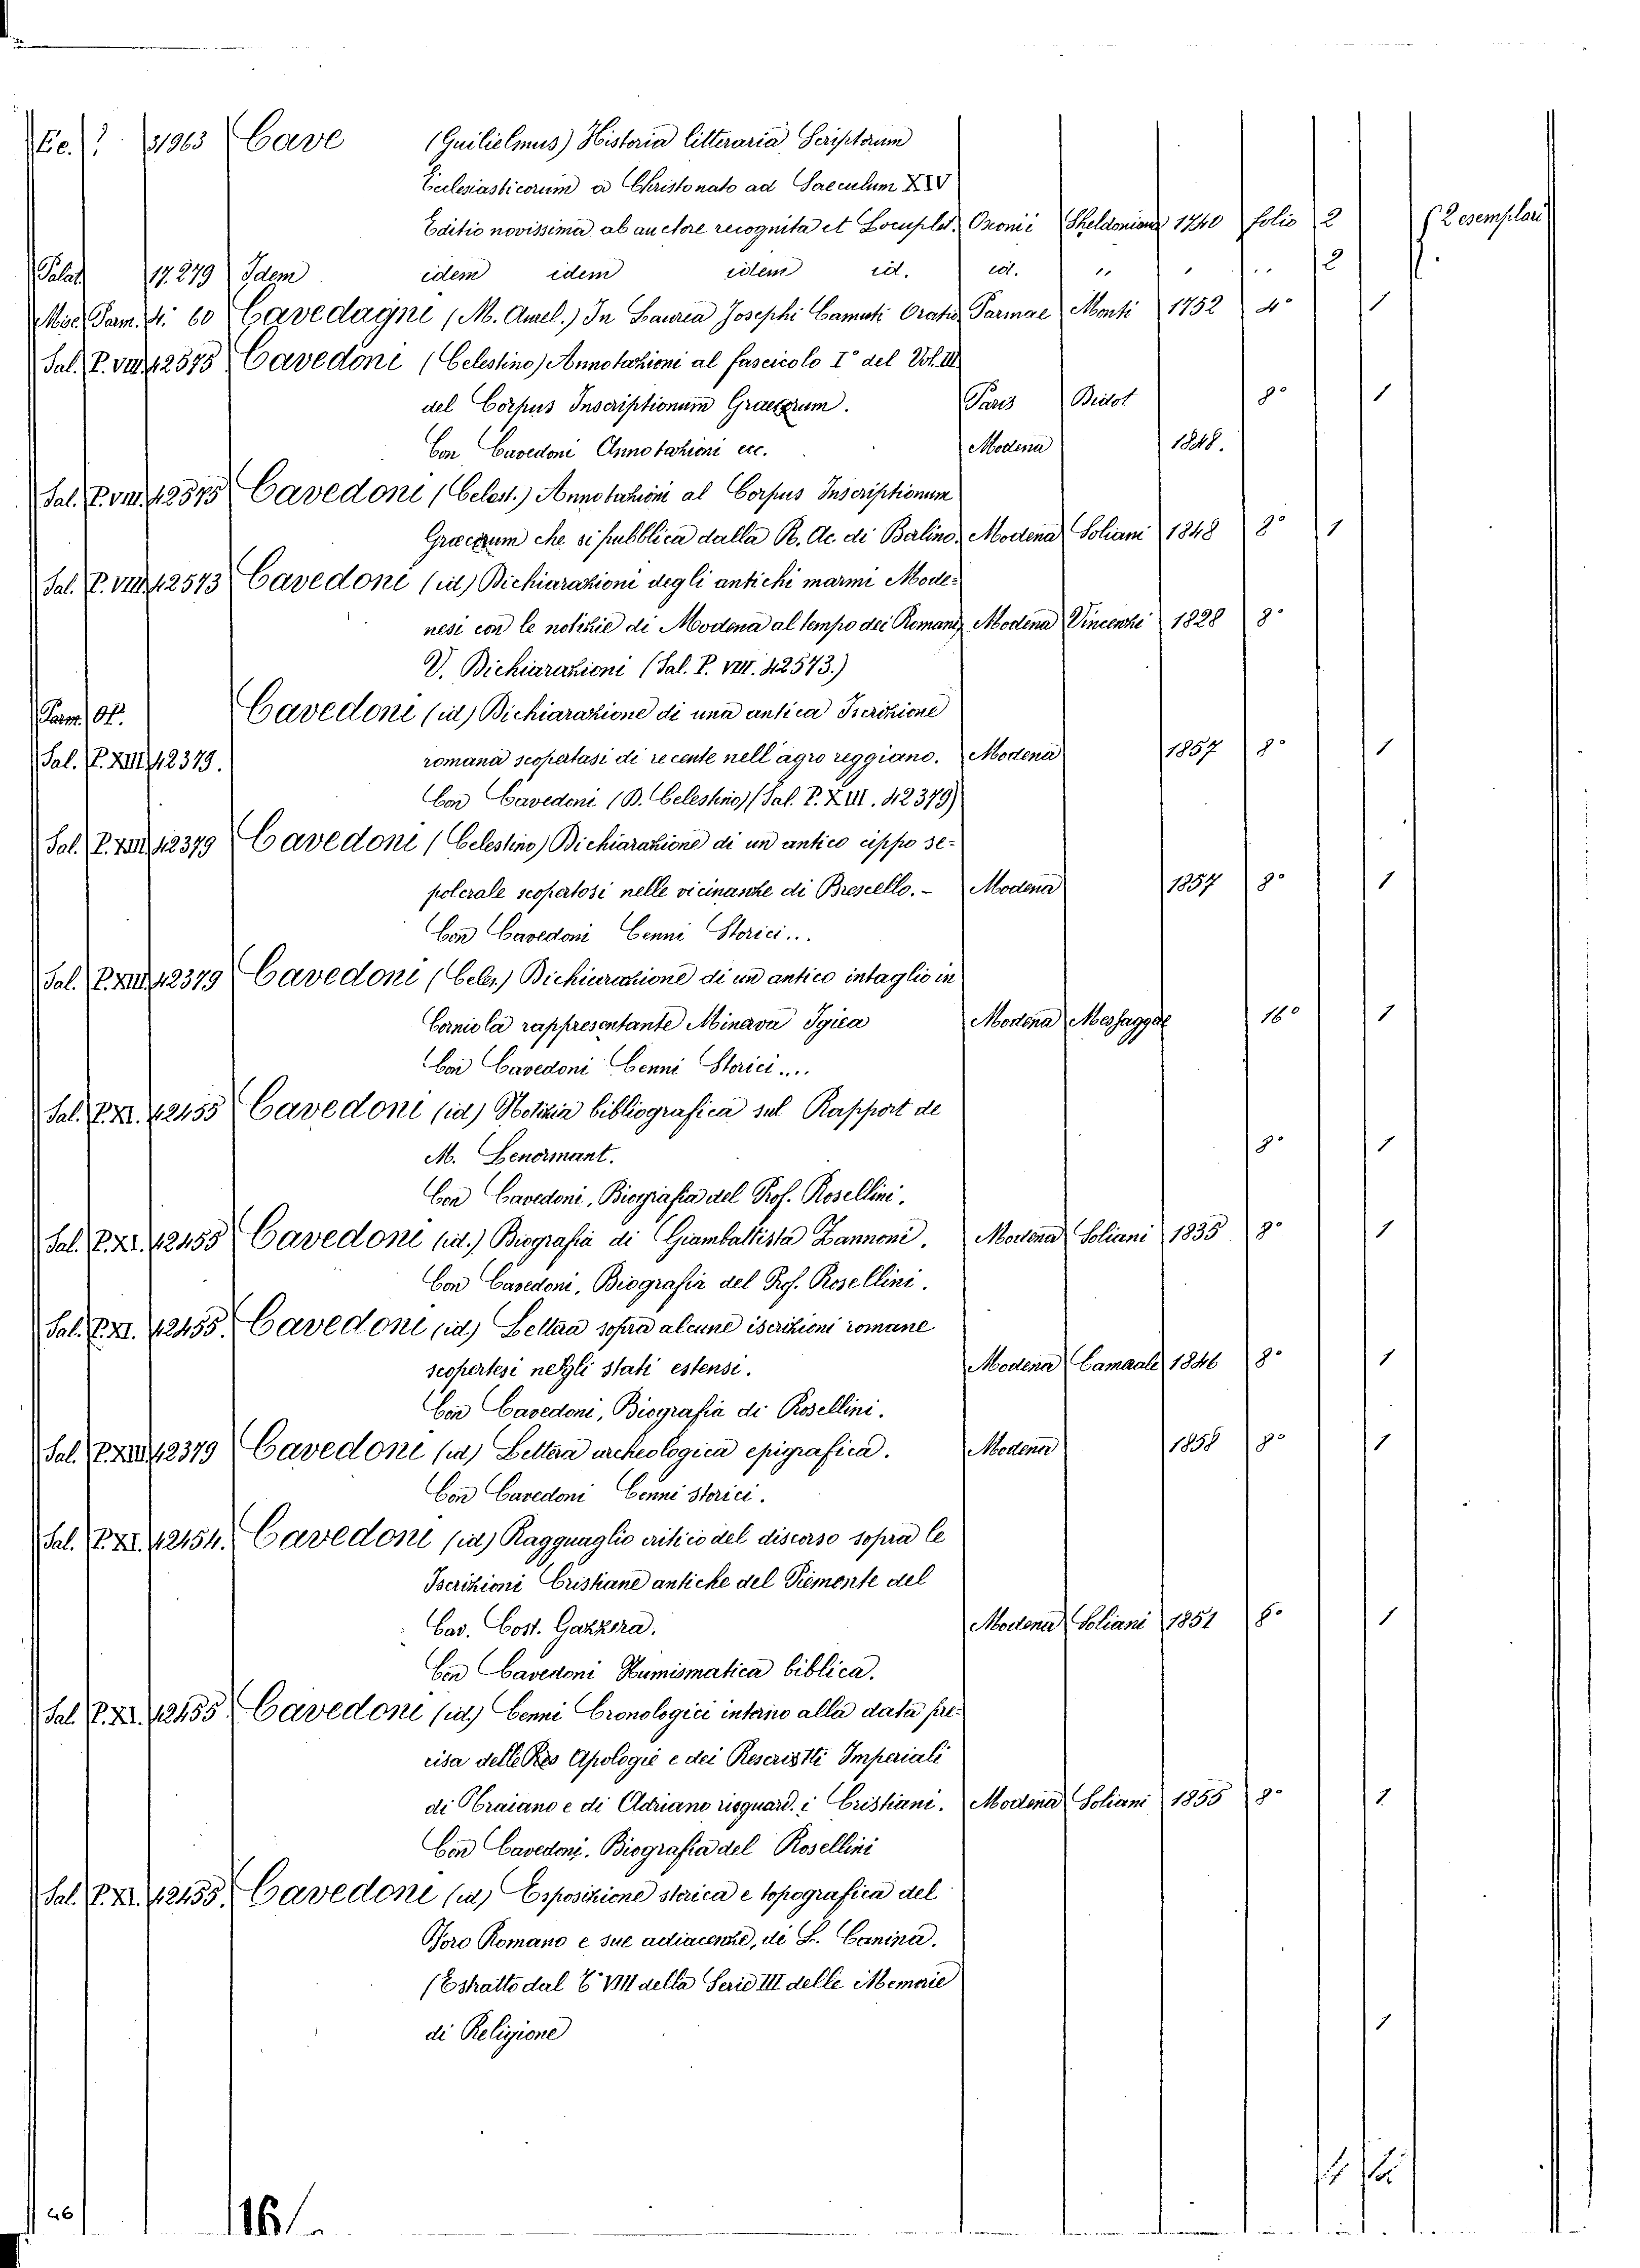 Ee. ? 31963 Cave (Guilielmus) Historia litteraria Scriptorum
Ecclesiasticorum a Christo nato ad Saeculum XIV
Editio novissima ab auctore recognita et Locuplet. Oxonii Sheldonian 1740 folio 2 2 esemplari
Palat 17.279 Idem idem idem idem id. id. " " " 2
Misc. Parm. 4: 60 Cavedagni (M. Aurel.) In Laurea Josephi Camuti Oratio Parmae Monti 1752 4° 1
Sal. P. VIII. 42575 Cavedoni (Celestino) Annotazioni al fascicolo I° del Vol. III
del Corpus Inscriptionum Graecarum. Paris Didot 8° 1
Con Cavedoni Annotazioni ecc. Modena 1848.
Sal. P. VIII. 42575 Cavedoni (Celest.) Annotazioni al Corpus Inscriptionum
Graecarum che si pubblica dalla R. Ac. di Berlino. Modena Soliani 1848 8° 1
Sal. P. VIII. 42573 Cavedoni (id) Dichiarazioni degli antichi marmi Mode-
nesi con le notizie di Modena al tempo dei Romani Modena Vincenzi 1828 8°
V. Dichiarazioni (Sal. P. VIII. 42573.)
Parm. Of. Cavedoni (id) Dichiarazione di una antica Iscrizione
Sal. P. XIII 42379. romana scopertasi di recente nell'agro reggiano. Modena 1857 8° 1
Con Cavedoni (D. Celestino) (Sal. P. XIII. 42379)
Sal. P. XIII. 42379 Cavedoni (Celestino) Dichiarazione di un antico cippo se-
polcrale scopertosi nelle vicinanze di Brescello. - Modena 1857 8° 1
Con Cavedoni Cenni Storici...
Sal. P. XIII. 42379 Cavedoni (Celes.) Dichiarazione di un antico intaglio in
Corniola rappresentante Minerva Igiea Modena Messaggere 16° 1
Con Cavedoni Cenni Storici....
Sal. P. XI. 42455 Cavedoni (id) Notizia bibliografica sul Rapport de
M. Lenormant. 8° 1
Con Cavedoni, Biografia del Prof. Rosellini.
Sal. P. XI. 42455 Cavedoni (id.) Biografia di Giamballista Zannoni. Modena Soliani 1835 8° 1
Con Cavedoni, Biografia del Prof. Rosellini.
Sal. P. XI. 42455. Cavedoni (id) Lettera sopra alcune iscrizioni romane
scopertesi negli stati estensi. Modena Camerale 1846 8° 1
Con Cavedoni, Biografia di Rosellini.
Sal. P. XIII 42379 Cavedoni (id) Lettera archeologica epigrafica. Modena 1858 8° 1
Con Cavedoni Cenni storici.
Sal. P. XI. 42454. Cavedoni (id) Ragguaglio critico del discorso sopra le
Iscrizioni Cristiane antiche del Piemonte del
Cav. Cost. Gazzera. Modena Soliani 1851 8° 1
Con Cavedoni Numismatica biblica.
Sal. P. XI. 42455. Cavedoni (id.) Cenni Cronologici intorno alla data pre-
cisa delle Apologie e dei Rescritti Imperiali
di Traiano e di Adriano risguard. i Cristiani. Modena Soliani 1855 8° 1
Con Cavedoni. Biografia del Rosellini
Sal. P. XI. 42455. Cavedoni (id) Esposizione storica e topografica del
Foro Romano e sue adiacenze, di L. Canina.
(Estratto dal T. VIII della Serie III delle Memorie
di Religione 1
46 116